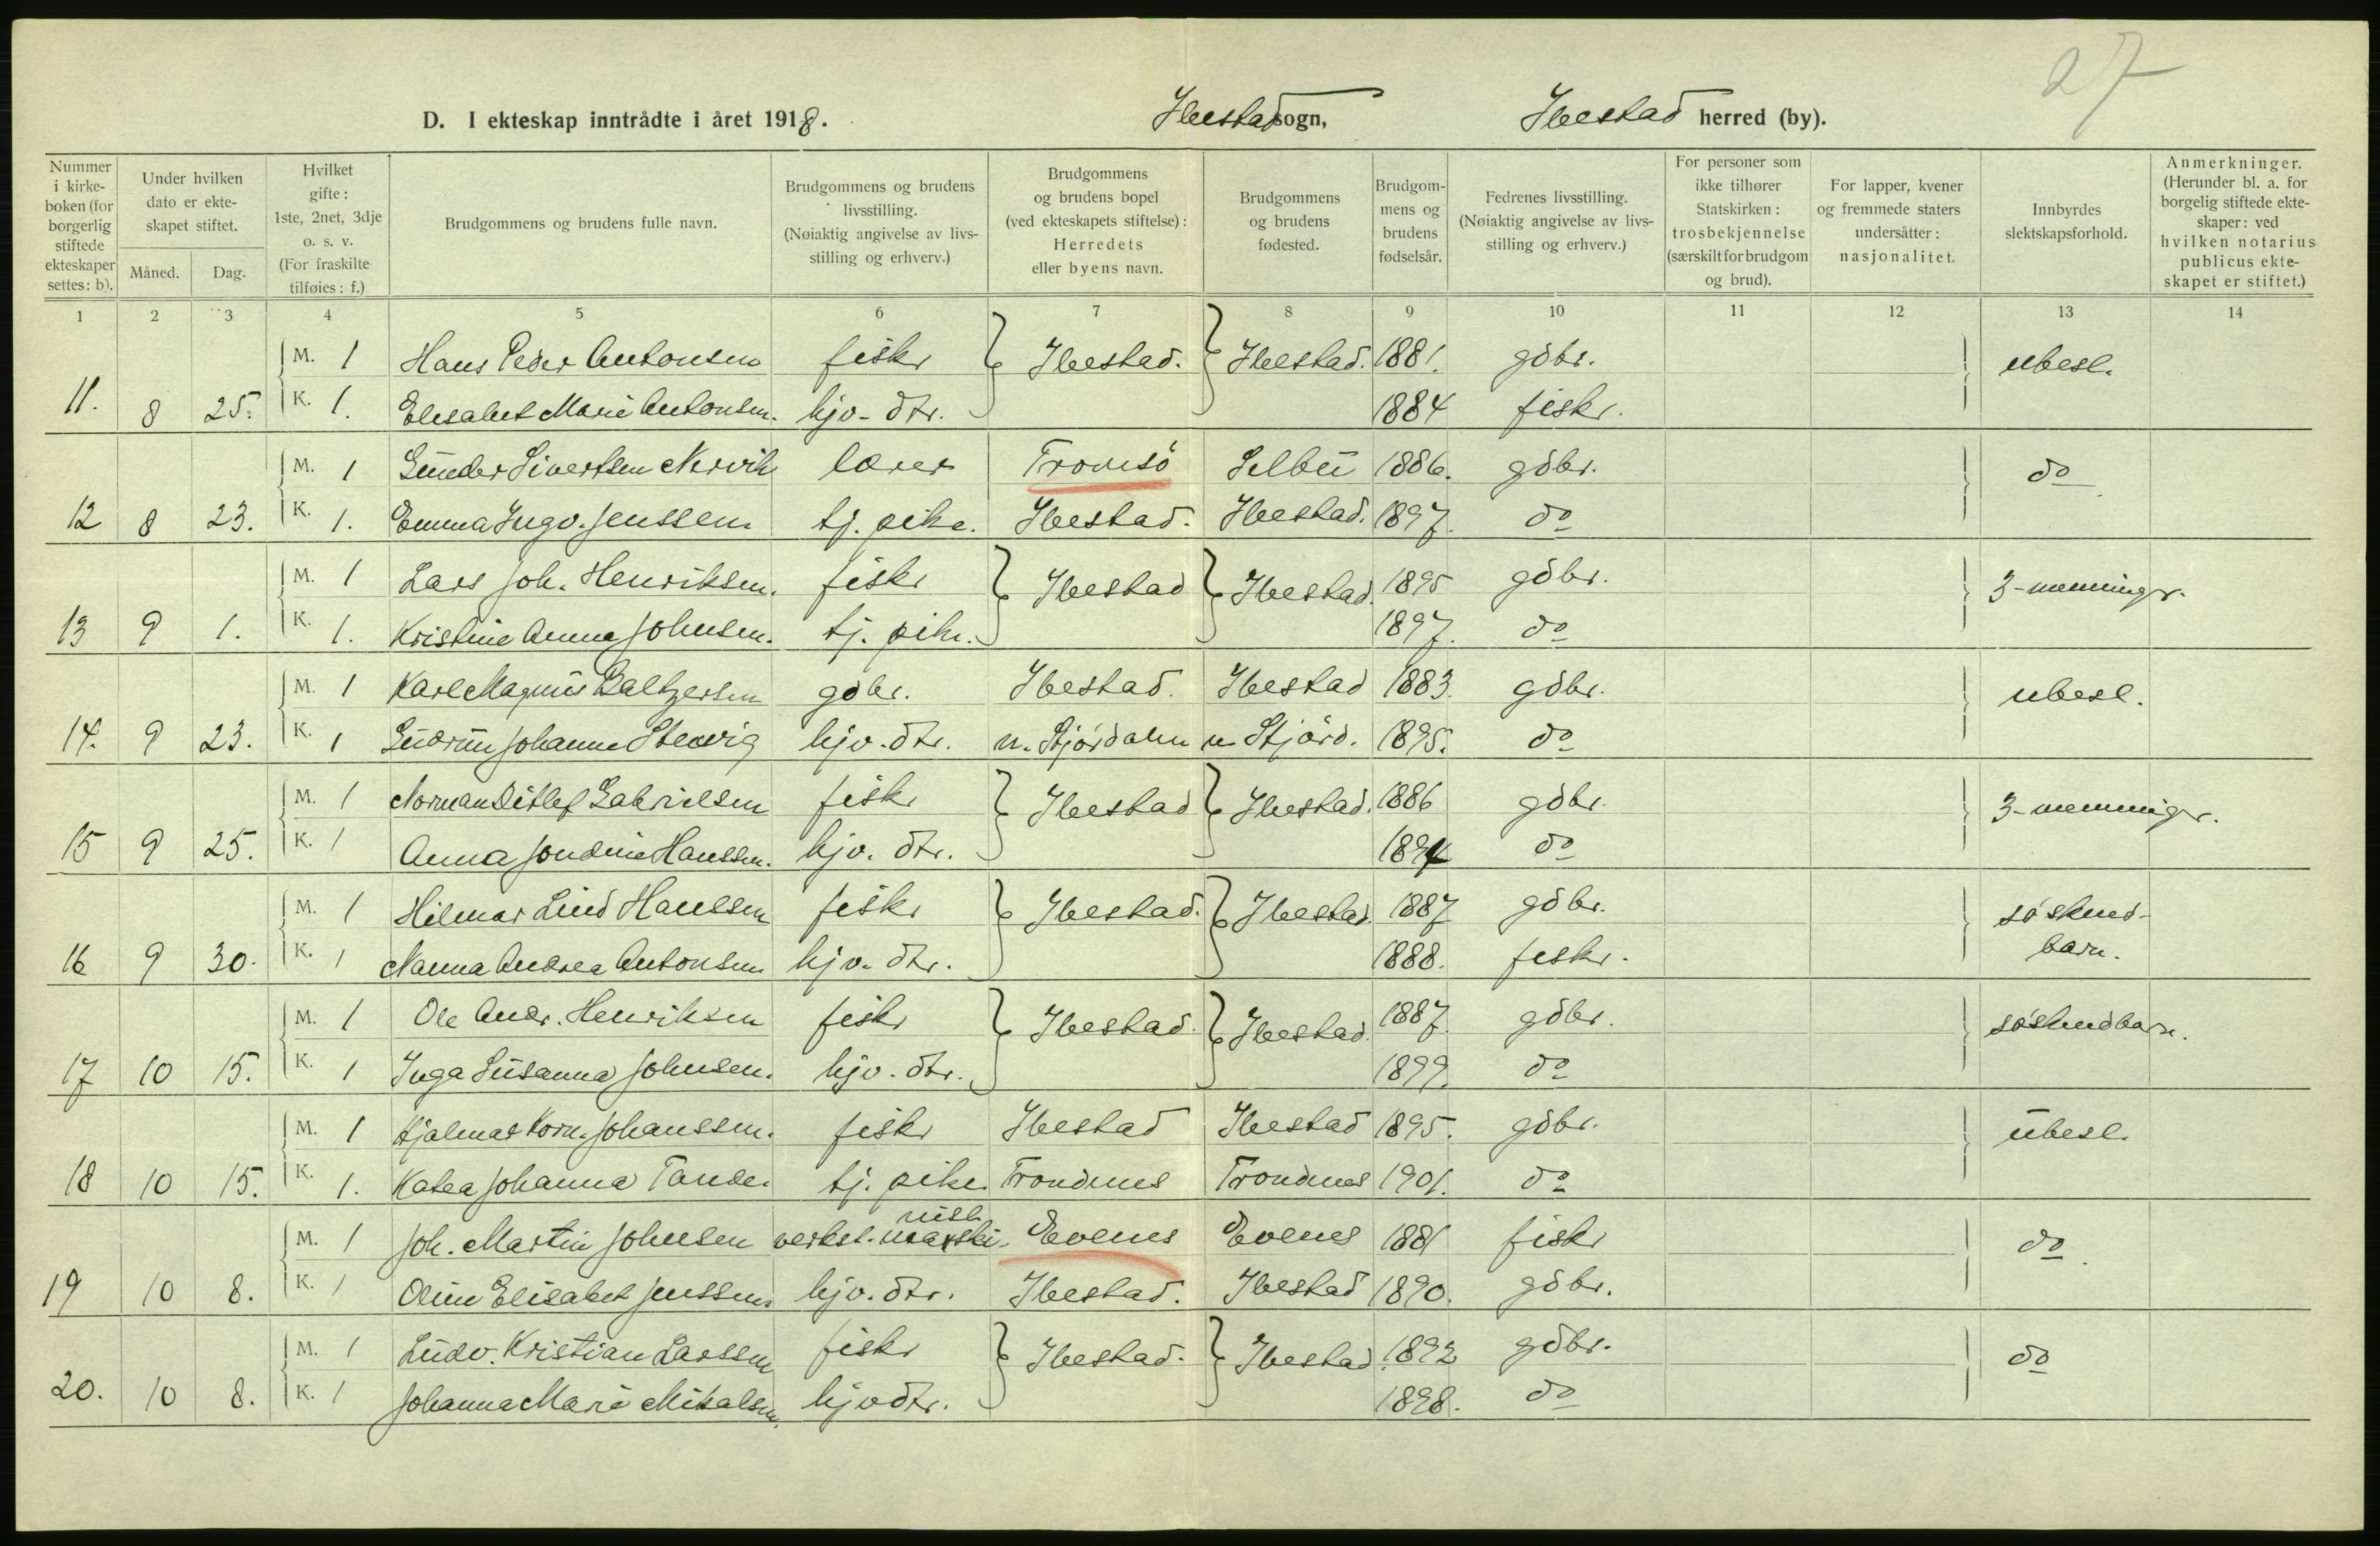 27
D. I ekteskap inntrådte i året 1918. Ibestad sogn, Ibestad herred (by).
Nummer i kirke-boken (for borgerlig stiftede ekteskaper settes: b). Under hvilken dato er ekte-skapet stiftet. Måned. Dag. Hvilket gifte: 1ste, 2net, 3dje o. s. v. (For fraskilte tilføies: f.) Brudgommens og brudens fulle navn. Brudgommens og brudens livsstilling. (Nøiaktig angivelse av livs-stilling og erhverv.) Brudgommens og brudens bopel (ved ekteskapets stiftelse): Herredets eller byens navn. Brudgommens og brudens fødested. Brudgom-mens og brudens fødselsår. Fedrenes livsstilling. (Nøiaktig angivelse av livs-stilling og erhverv.) For personer som ikke tilhører Statskirken: trosbekjennelse (særskilt for brudgom og brud). For lapper, kvener og fremmede staters undersåtter: nasjonalitet. Innbyrdes slektskapsforhold. Anmerkninger. (Herunder bl. a. for borgelig stiftede ekte-skaper: ved hvilken notarius publicus ekte-skapet er stiftet.)
1 2 3 4 5 6 7 8 9 10 11 12 13 14
M. 1 Hans Peder Antonsen fiskr Ibestad. Ibestad. 1881. gdbr. ubesl.
11. 8 25. K. 1. Elisabet Marie Antonsen. hjv-dtr. 1884 fiskr.
M. 1 Gunder Sivertsen Nervik lærer Tromsö Selbu 1886. gdbr. do
12 8 23. K. 1. Emma Ingv. Jenssen. tj. pike. Ibestad. Ibestad. 1897. do
M. 1 Lars Joh. Henriksen. fiskr Ibestad Ibestad. 1895 gdbr. 3-menningr.
13 9 1. K. 1. Kristine Anna Johnsen. tj. pike. 1897. do
M. 1 Karl Magnus Baltzersen gdbr. Ibestad. Ibestad 1883. gdbr. ubesl.
14. 9 23. K. 1 Gudrun Johanne Stenvig hjv. dtr. n. Stjördalen n. Stjörd. 1895. do
M. 1 Norman Ditlef Gabrielsen fiskr Ibestad Ibestad. 1886 gdbr. 3-menningr.
15 9 25. K. 1 Anna Jondine Hanssen. hjv. dtr. 1894 do
M. 1 Hilmar Lind Hanssen fiskr Ibestad. Ibestad. 1887 gdbr. söskend-
16 9 30. K. 1 Nanna Andrea Antonsen hjv. dtr. 1888. fiskr. barn.
M. 1 Ole Andr. Henriksen fiskr Ibestad. Ibestad. 1887. gdbr. söskendbarn.
17 10 15. K. 1 Inga Susanna Johnsen. hjv. dtr. 1899. do
M. 1 Hjalmar Korn. Johanssen. fiskr Ibestad Ibestad 1895. gdbr. ubesl.
18 10 15. K. 1. Katea Johanna Tande. tj. pike. Trondenes Trondenes 1901. do
M. 1 Joh. Martin Johnsen verkst. maski- nist. Evenes Evenes 1881 fiskr do
19 10 8. K. 1 Oline Elisabet Jenssen. hjv. dtr. Ibestad. Ibestad 1890. gdbr.
M. 1 Ludv. Kristian Larssen fiskr Ibestad. Ibestad 1892 gdbr. do
20. 10 8. K. 1 Johanna Marie Mikalsen. hjv dtr. 1898. do